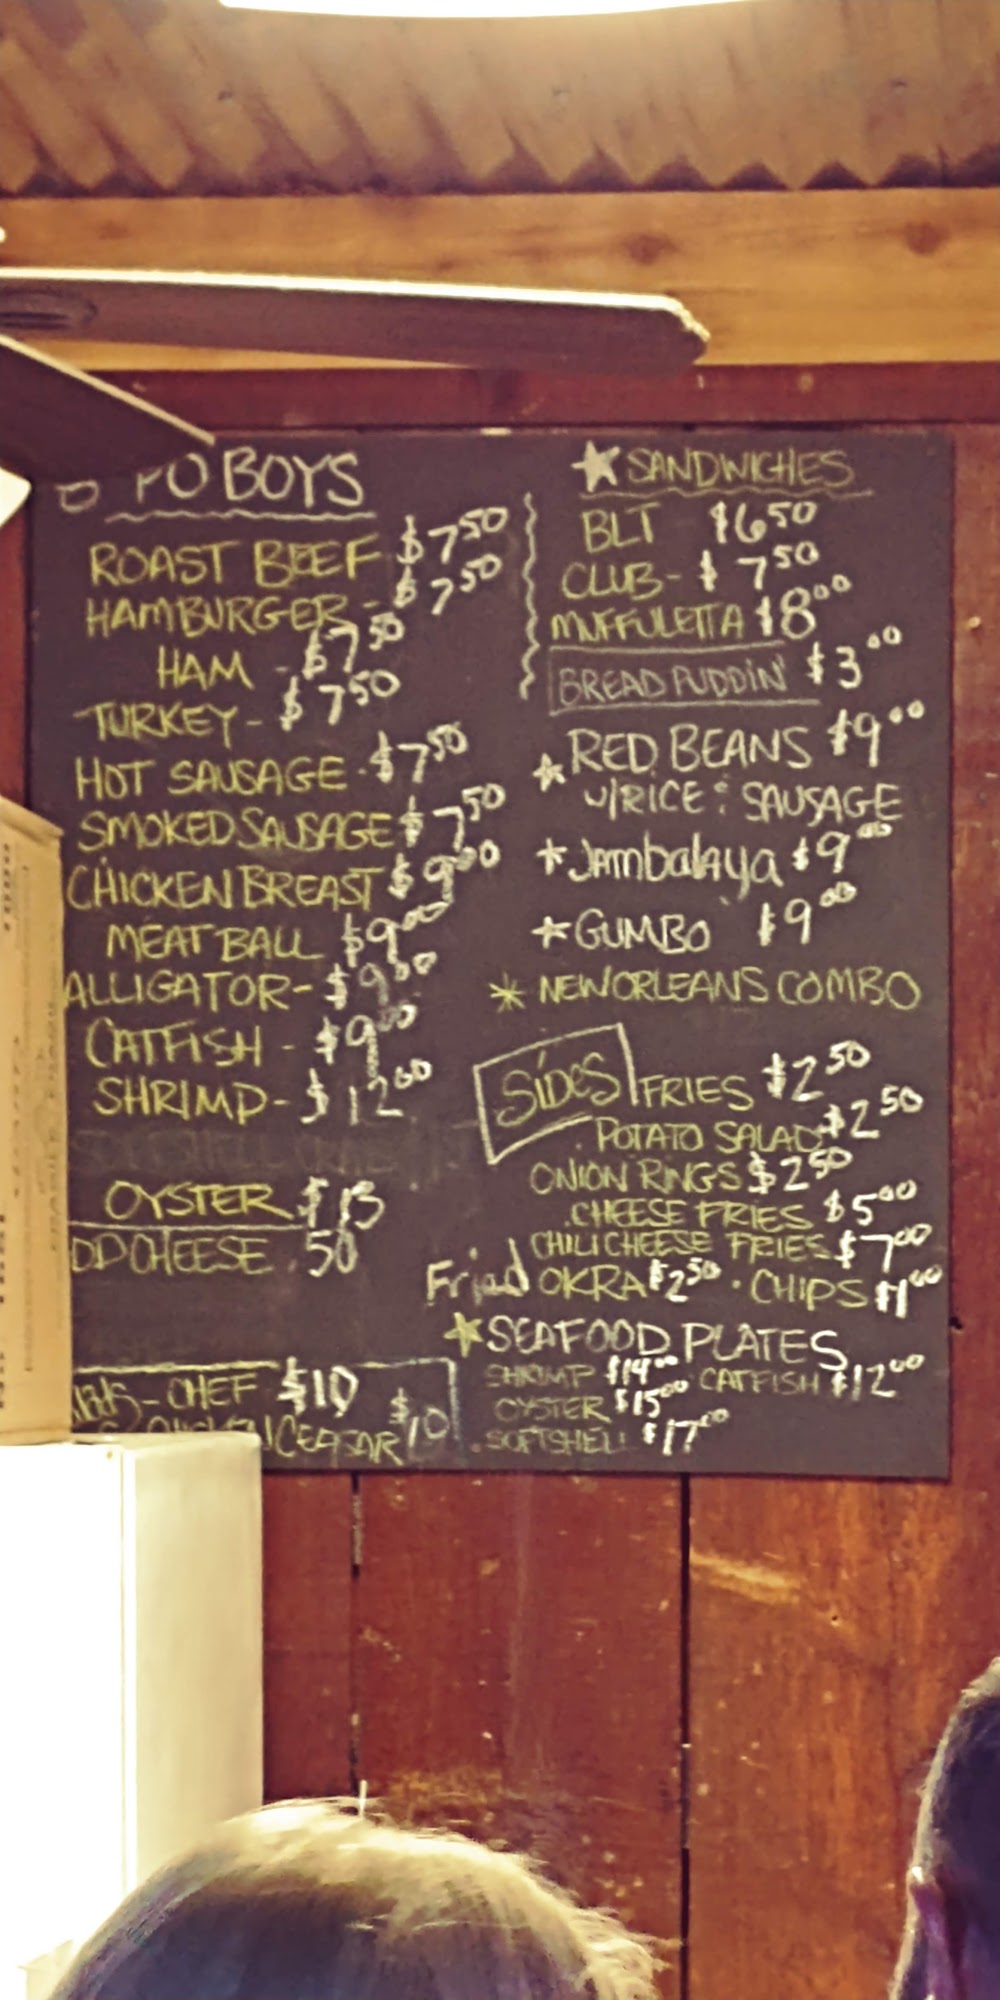 PO BOYS
ROAST BEEF $7.50
HAMBURGER - $7.50
HAM - $7.50
TURKEY - $7.50
HOT SAUSAGE - $7.50
SMOKED SAUSAGE $7.50
CHICKEN BREAST $9.00
MEATBALL $9.00
ALLIGATOR - $9.00
CATFISH - $9.00
SHRIMP - $12.00
OYSTER $13
DD CHEESE .50
- CHEF $10
CEASAR $10
SANDWICHES
BLT $6.50
CLUB - $7.50
MUFFULETTA $8.00
BREAD PUDDIN' $3.00
RED BEANS $9.00
W/RICE & SAUSAGE
Jambalaya $9.00
GUMBO $9.00
NEW ORLEANS COMBO
SIDES FRIES $2.50
POTATO SALAD $2.50
ONION RINGS $2.50
CHEESE FRIES $5.00
CHILI CHEESE FRIES $7.00
Fried OKRA $2.50 · CHIPS $1.00
SEAFOOD PLATES
SHRIMP $14.00 CATFISH $12.00
OYSTER $15.00
SOFTSHELL $17.00